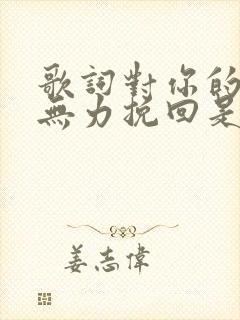 歌詞對你的
無力挽回是
姜志偉